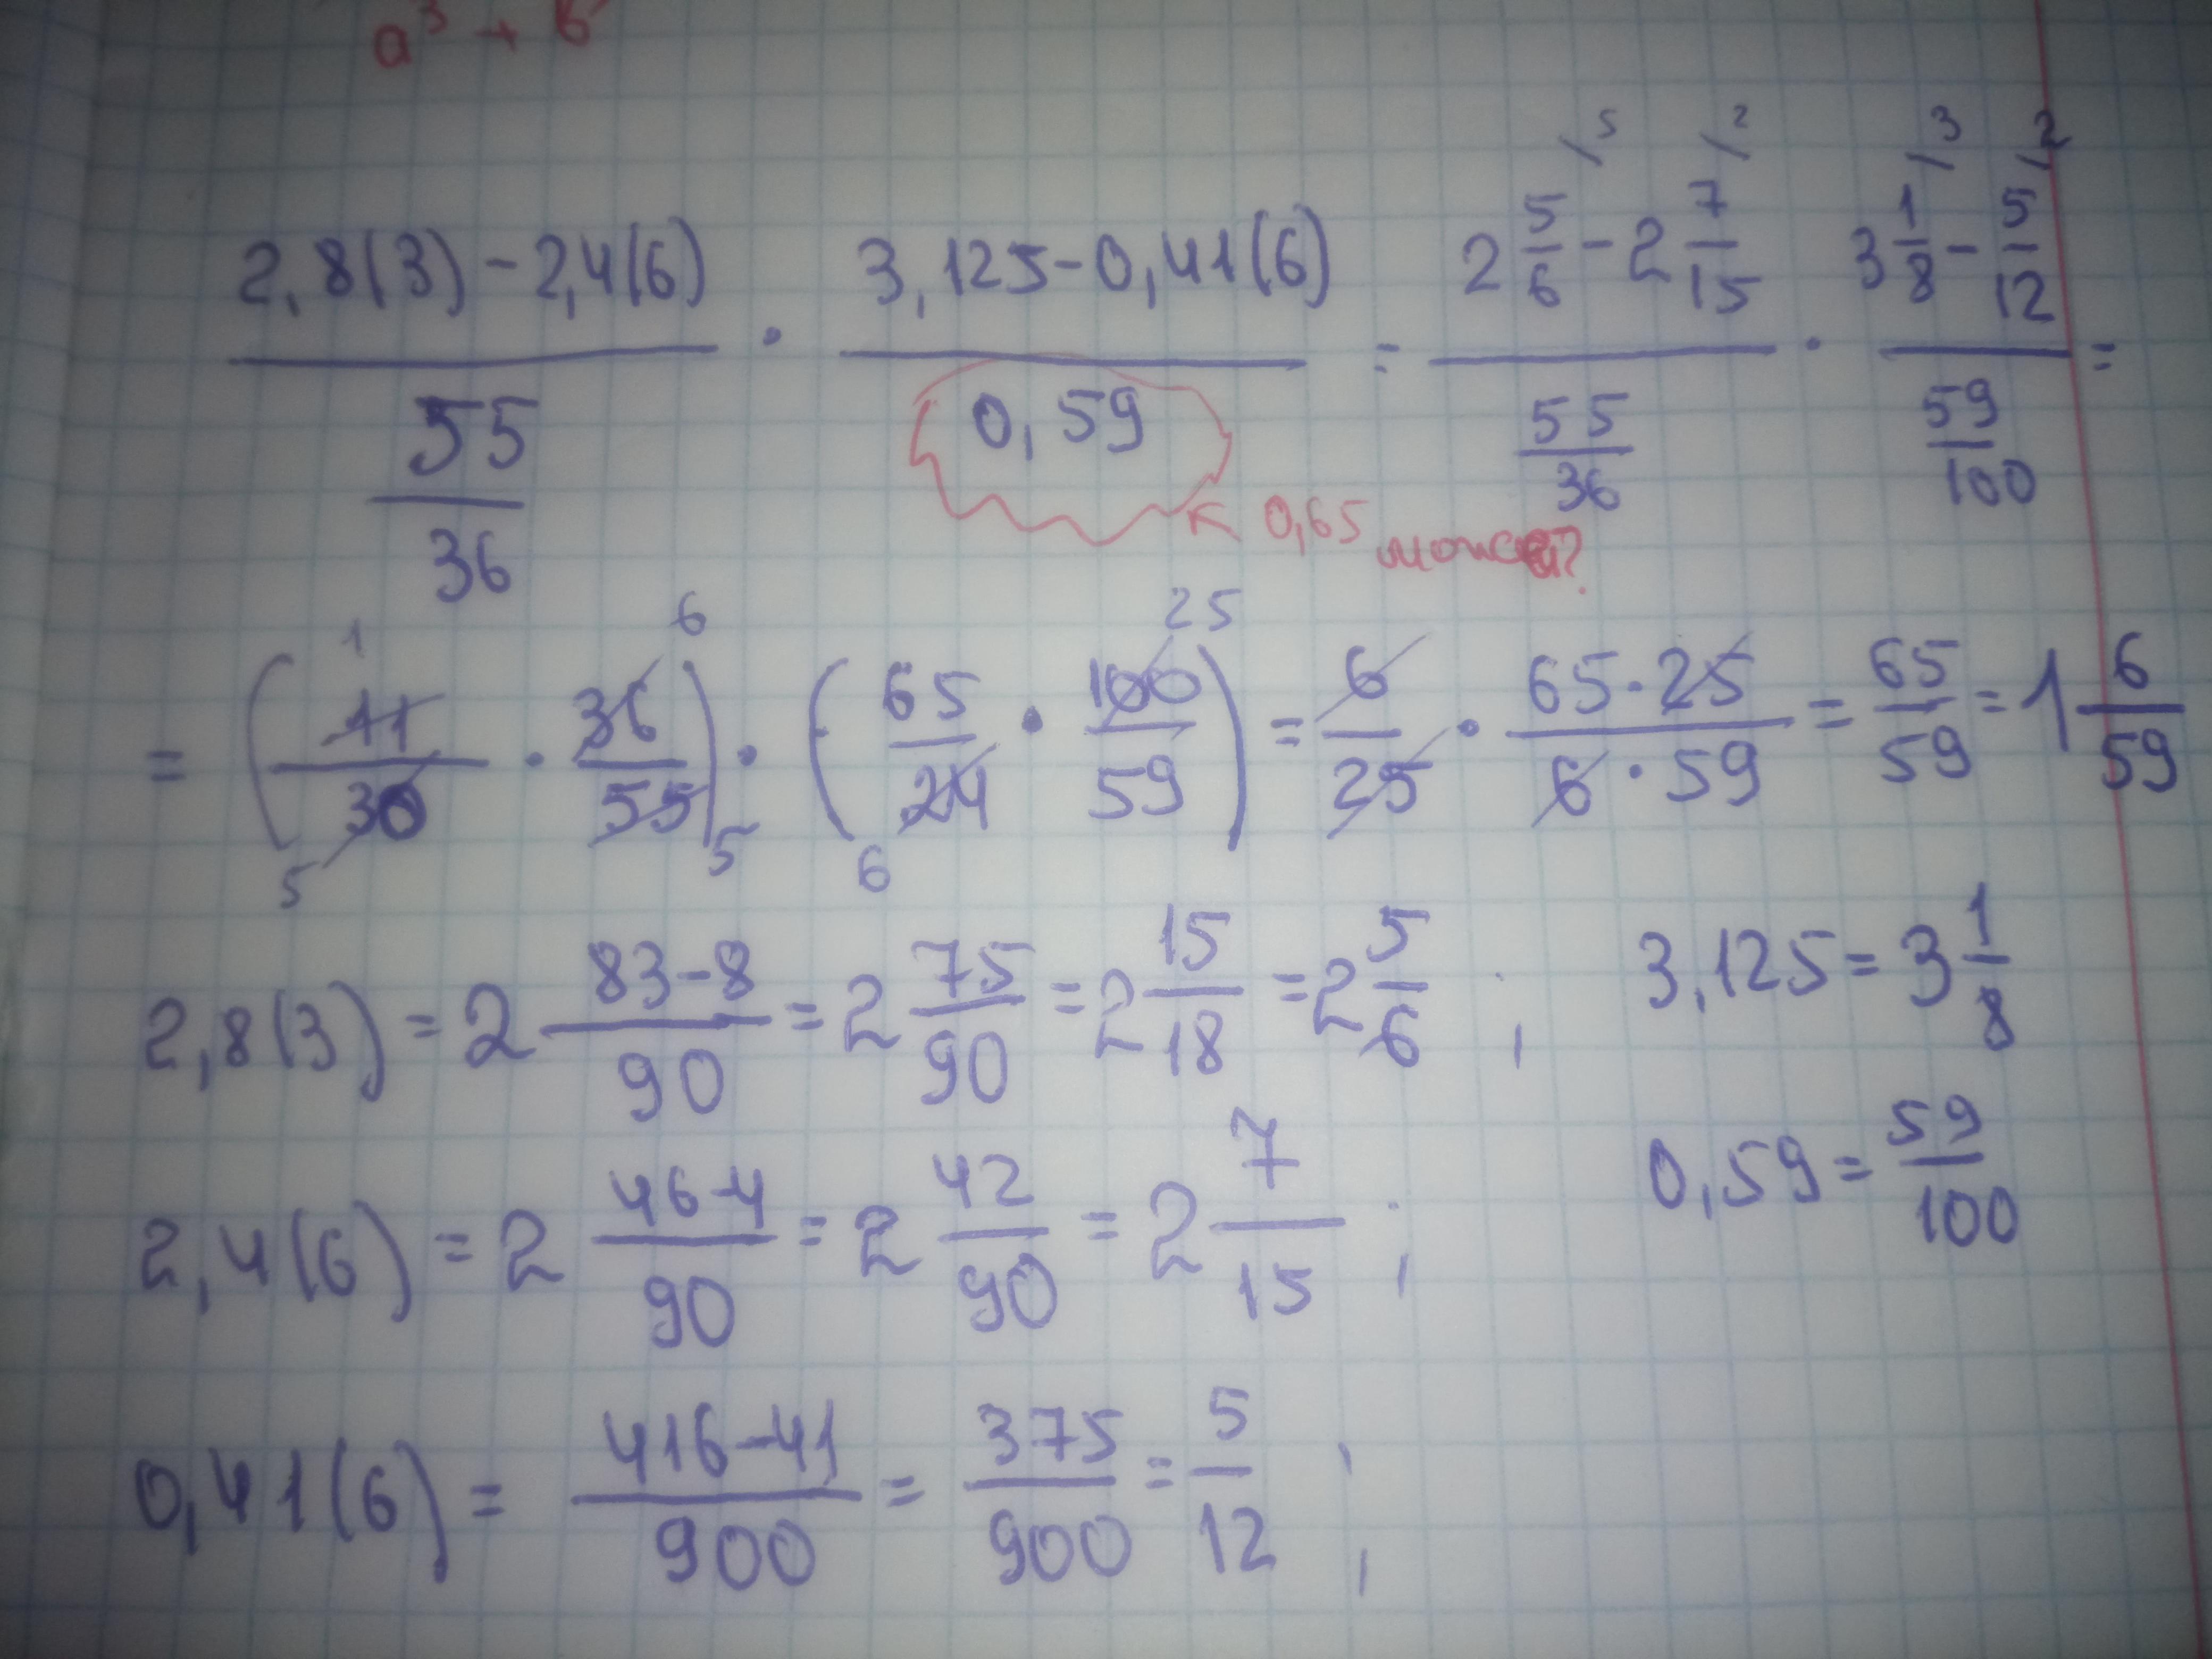 a³ + b
(2,8(3) - 2,4(6))/(55/36) · (3,125 - 0,41(6))/(0,59) = (2 5/6 /5 - 2 7/15 /2)/(55/36) · (3 1/8 /3 - 5/12 /2)/(59/100) =
← 0,65 может?
= (11/30 · 36/55) · (65/24 · 100/59) = 6/25 · (65·25)/(6·59) = 65/59 = 1 6/59
1 6 25
5 5 6
2,8(3) = 2 (83-8)/90 = 2 75/90 = 2 15/18 = 2 5/6 ; 3,125 = 3 1/8
2,4(6) = 2 (46-4)/90 = 2 42/90 = 2 7/15 ; 0,59 = 59/100
0,41(6) = (416-41)/900 = 375/900 = 5/12 ;